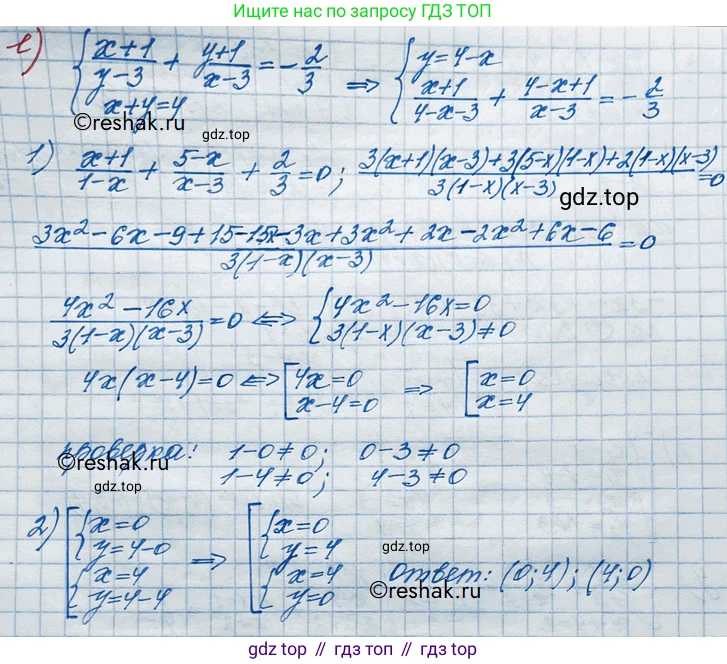 Ищите нас по запросу ГДЗ ТОП
е) { (x+1)/(y-3) + (y+1)/(x-3) = -2/3 ; x+y=4 ⇒ { y=4-x ; (x+1)/(4-x-3) + (4-x+1)/(x-3) = -2/3
©reshak.ru gdz.top
1) (x+1)/(1-x) + (5-x)/(x-3) + 2/3 = 0; (3(x+1)(x-3)+3(5-x)(1-x)+2(1-x)(x-3))/(3(1-x)(x-3)) = 0
gdz.top
(3x²-6x-9+15-15x-3x+3x²+2x-2x²+6x-6)/(3(1-x)(x-3)) = 0
(4x²-16x)/(3(1-x)(x-3)) = 0 ⇔ { 4x²-16x=0 ; 3(1-x)(x-3)≠0
4x(x-4)=0 ⇔ [ 4x=0 ; x-4=0 ⇒ [ x=0 ; x=4
проверка: 1-0≠0; 0-3≠0
©reshak.ru 1-4≠0; 4-3≠0
2) [ { x=0 ; y=4-0 ; { x=4 ; y=4-4 ⇒ [ { x=0 ; y=4 ; { x=4 ; y=0
gdz.top
Ответ: (0;4); (4;0)
©reshak.ru gdz.top
gdz top // гдз топ // gdz.top // гдз.топ